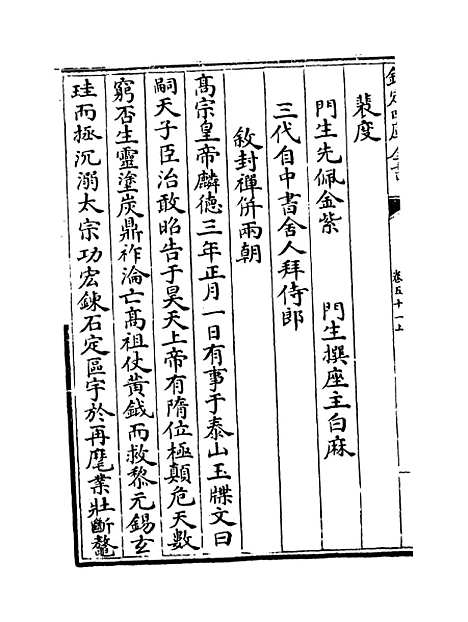 欽定四庫全書
卷五十一上
裴度
門生先佩金紫　門生撰座主白麻
三代自中書舍人拜侍郎
敘封禪併兩朝
髙宗皇帝麟德三年正月一日有事于泰山玉牒文曰
嗣天子臣治敢昭告于昊天上帝有隋位極顛危天數
窮否生靈塗炭鼎祚淪亡髙祖仗黄鉞而救黎元錫玄
珪而拯沉溺太宗功宏鍊石定區宇於再麾業壯斷鼇